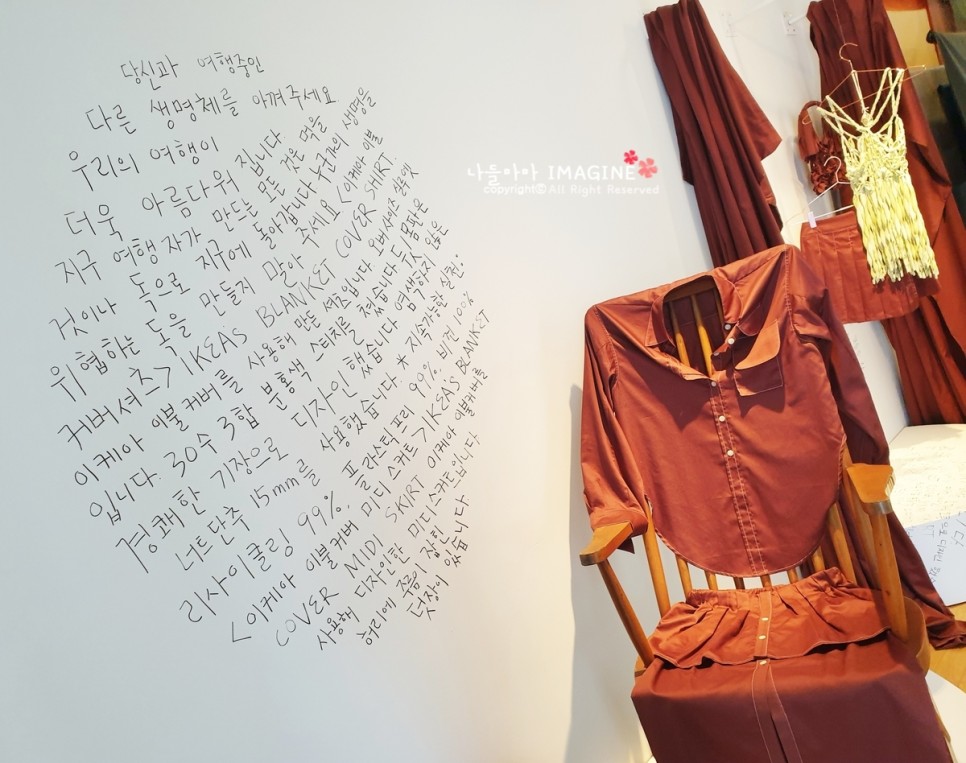 당신과 여행중인
다른 생명체를 아껴주세요
우리의 여행이
더욱 아름다워 집니다.
지구 여행자가 만드는 모든 것은 먹을
것이나 독으로 지구에 돌아갑니다 누군가의 생명을
위협하는 독을 만들지 말아 주세요 <이케아 이불
커버 셔츠> IKEA'S BLANKET COVER SHIRT.
이케아 이불 커버를 사용해 만든 셔츠입니다. 오버셔츠
입니다. 30수 3합 분홍색 스티치로 쳤습니다
경쾌한 기장으로 디자인 했습니다 염색하지 않은
너트단추 15mm를 사용했습니다. * 지속가능한 실천.
리사이클링 99% 플라스틱 프리 99% 비건 100%
<이케아 이불커버 미디 스커트> IKEA'S BLANKET
COVER MIDI SKIRT 이케아 이불커버를
사용해 디자인한 미디 스커트입니다
허리에 주름이 잡힌
덧장이 있습니다
나들이아 IMAGINE
copyrightⓒ All Right Reserved